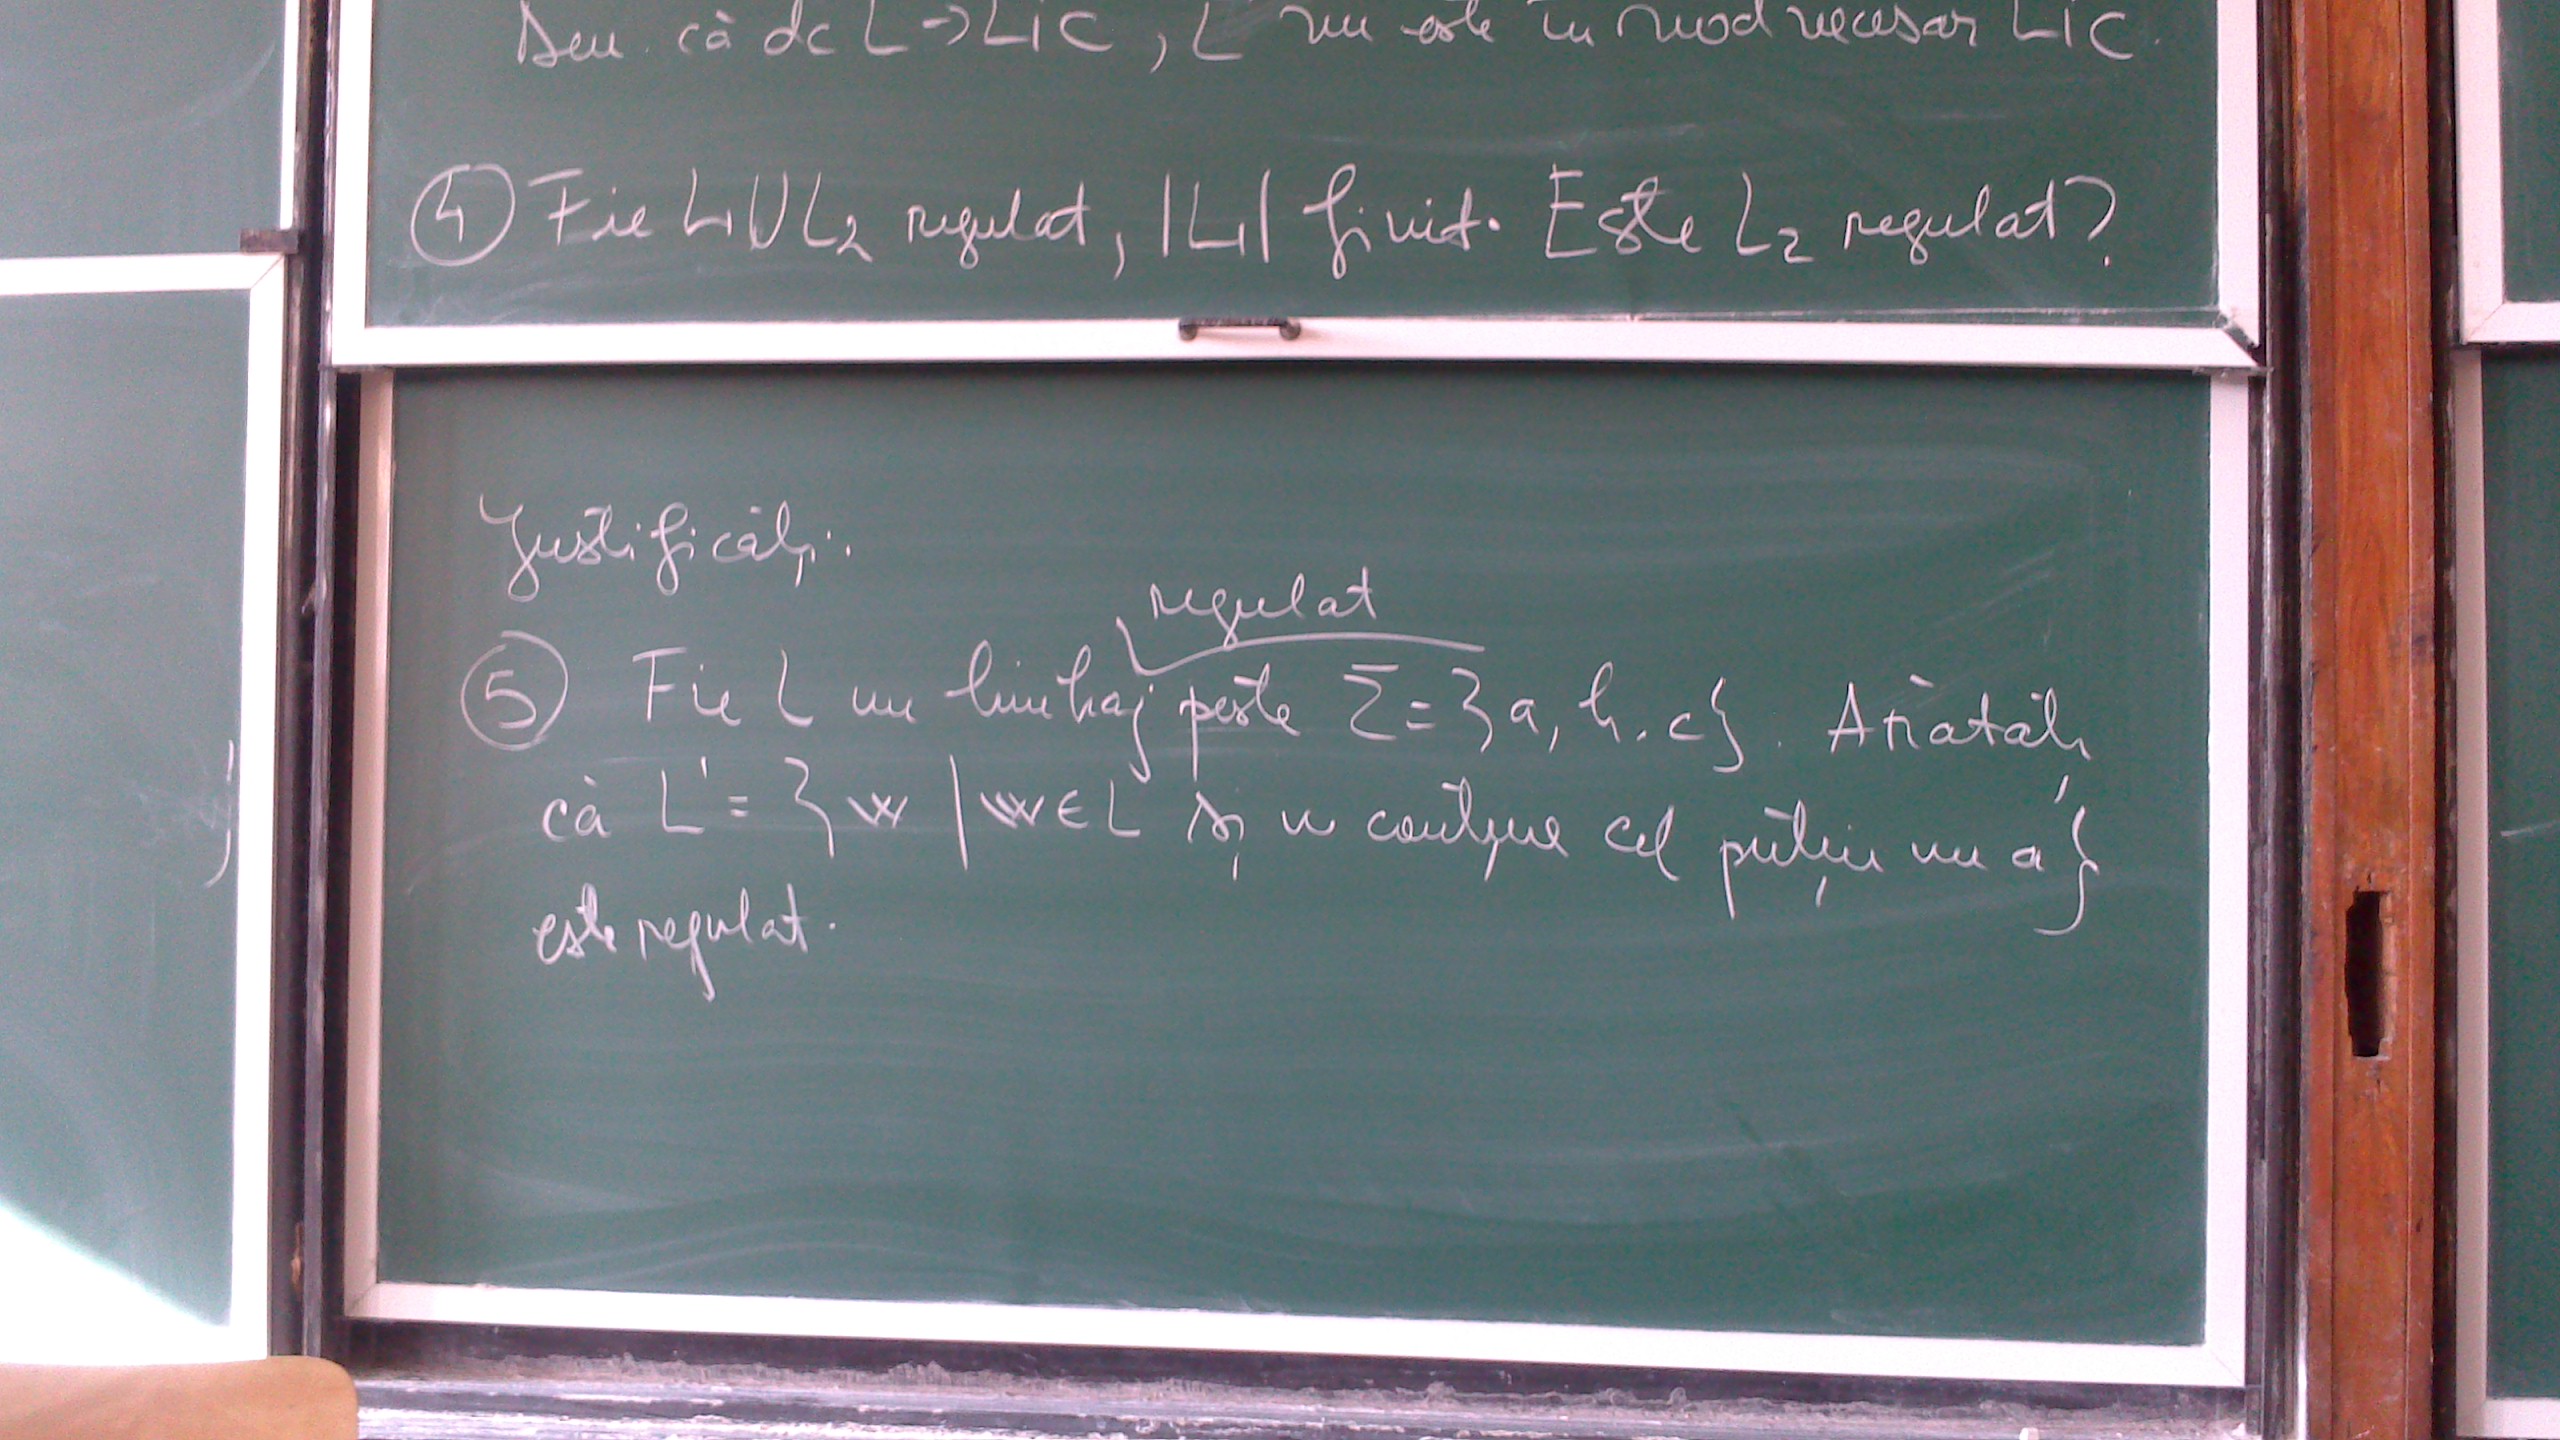 Dem. că dc L -> LIC, L nu este în mod necesar LIC.
④ Fie L1 U L2 regulat, |L1| finit. Este L2 regulat?
Justificați.
regulat
⑤ Fie L un limbaj peste Σ = {a, b, c}. Arătați
că L' = {w | w ∈ L și w conține cel puțin un a}
este regulat.